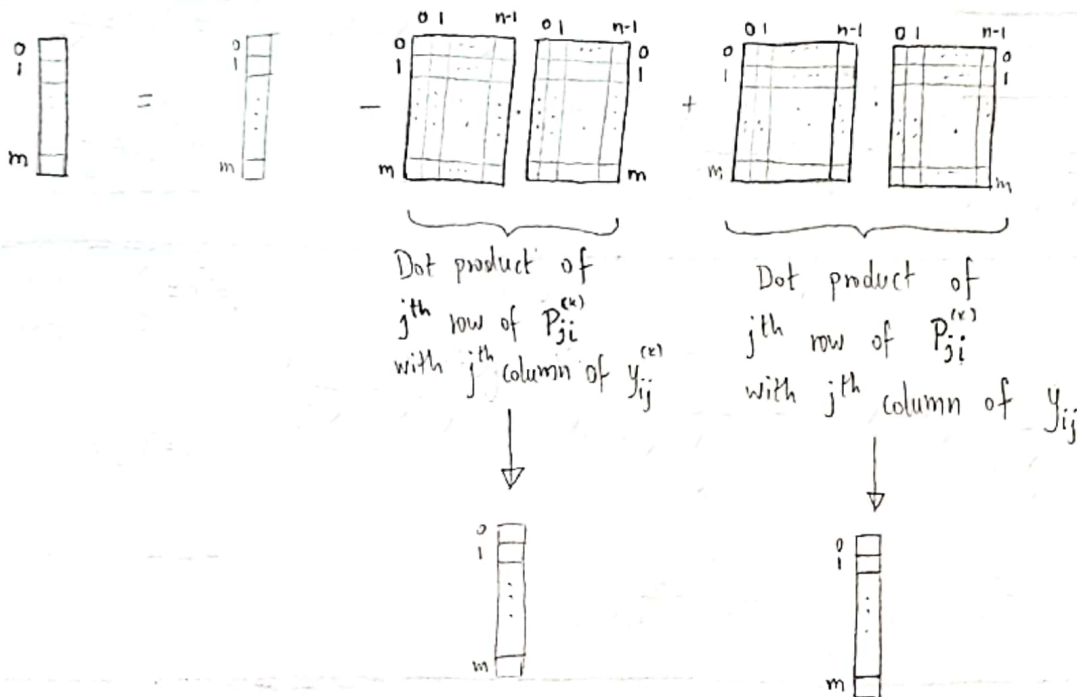 0 1 n-1 0 1 n-1 0 1 n-1 0 1 n-1
0 0 0 0 0 0
1 1 1 1 1 1
= - . + .
m m m m m m
Dot product of
jth row of P_ji^(k)
with jth column of y_ij^(k)
Dot product of
jth row of P_ji^(k)
with jth column of y_ij
0 0
1 1
m m